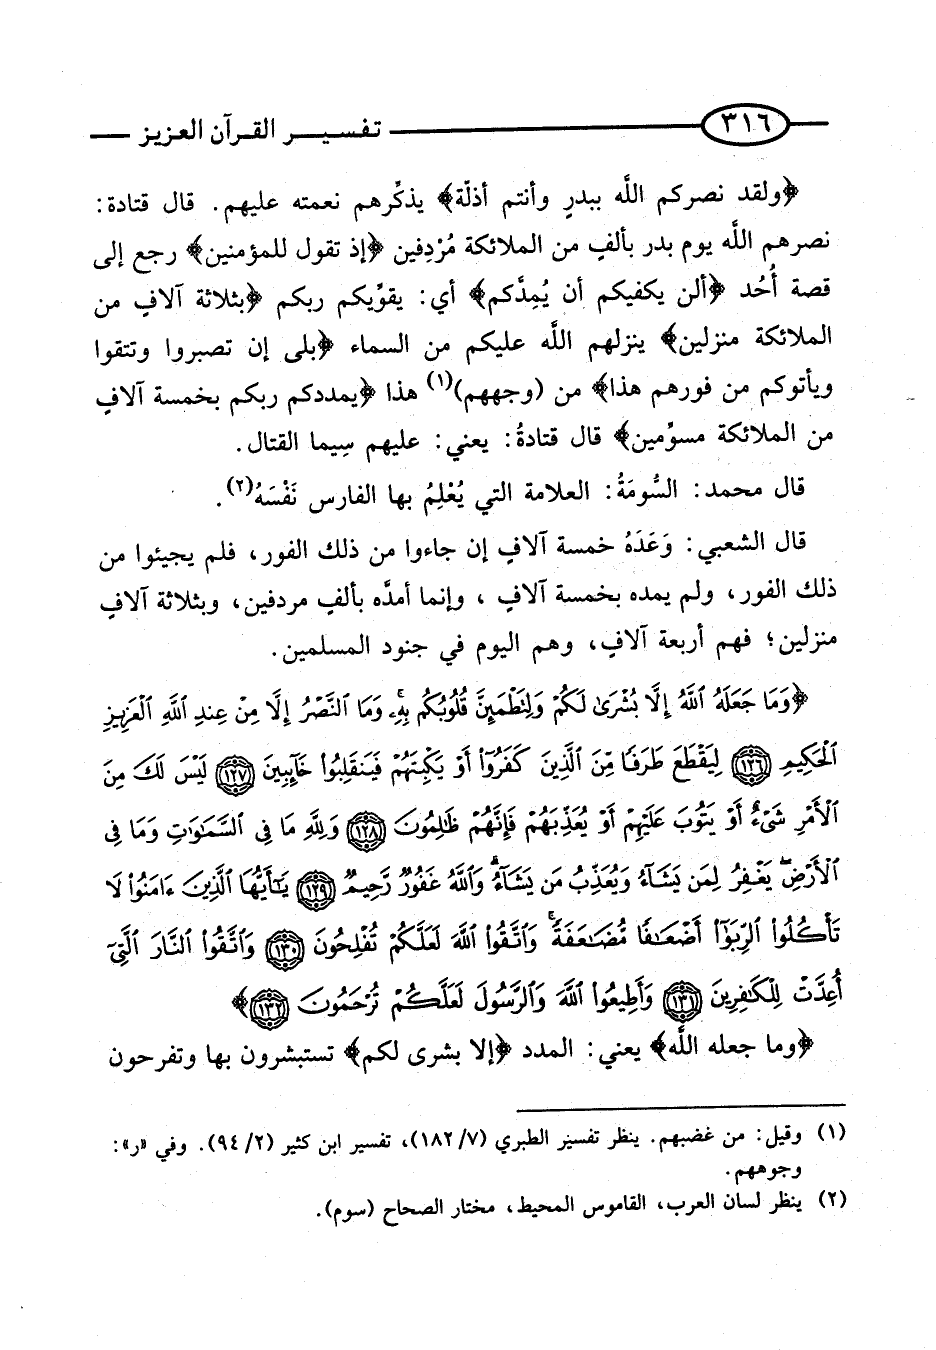 ٣١٦ تفسير القرآن العزيز
﴿ولقد نصركم اللَّه ببدرٍ وأنتم أذلّة﴾ يذكِّرهم نعمته عليهم. قال قتادة:
نصرهم اللَّه يوم بدر بألفٍ من الملائكة مُرْدِفين ﴿إذ تقول للمؤمنين﴾ رجع إلى
قصة أُحُد ﴿ألن يكفيكم أن يُمِدَّكم﴾ أي: يقوِّيكم ربكم ﴿بثلاثة آلافٍ من
الملائكة منزلين﴾ ينزلهم اللَّه عليكم من السماء ﴿بلى إن تصبروا وتتقوا
ويأتوكم من فورهم هذا﴾ من (وجههم)(١) هذا ﴿يمددكم ربكم بخمسة آلافٍ
من الملائكة مسوِّمين﴾ قال قتادةُ: يعني: عليهم سِيما القتال.
قال محمد: السُّومَةُ: العلامة التي يُعْلِمُ بها الفارس نَفْسَهُ(٢).
قال الشعبي: وَعَدَهُ خمسة آلافٍ إن جاءوا من ذلك الفور، فلم يجيئوا من
ذلك الفور، ولم يمده بخمسة آلافٍ ، وإنما أمدَّه بألفٍ مردفين، وبثلاثة آلافٍ
منزلين؛ فهم أربعة آلافٍ، وهم اليوم في جنود المسلمين.
﴿وَمَا جَعَلَهُ ٱللَّهُ إِلَّا بُشْرَىٰ لَكُمْ وَلِتَطْمَئِنَّ قُلُوبُكُم بِهِۦ وَمَا ٱلنَّصْرُ إِلَّا مِنْ عِندِ ٱللَّهِ ٱلْعَزِيزِ
ٱلْحَكِيمِ ١٢٦ لِيَقْطَعَ طَرَفًا مِّنَ ٱلَّذِينَ كَفَرُوٓا۟ أَوْ يَكْبِتَهُمْ فَيَنقَلِبُوا۟ خَآئِبِينَ ١٢٧ لَيْسَ لَكَ مِنَ
ٱلْأَمْرِ شَىْءٌ أَوْ يَتُوبَ عَلَيْهِمْ أَوْ يُعَذِّبَهُمْ فَإِنَّهُمْ ظَـٰلِمُونَ ١٢٨ وَلِلَّهِ مَا فِى ٱلسَّمَـٰوَٰتِ وَمَا فِى
ٱلْأَرْضِ ۚ يَغْفِرُ لِمَن يَشَآءُ وَيُعَذِّبُ مَن يَشَآءُ ۚ وَٱللَّهُ غَفُورٌ رَّحِيمٌ ١٢٩ يَـٰٓأَيُّهَا ٱلَّذِينَ ءَامَنُوا۟ لَا
تَأْكُلُوا۟ ٱلرِّبَوٰٓا۟ أَضْعَـٰفًا مُّضَـٰعَفَةً ۖ وَٱتَّقُوا۟ ٱللَّهَ لَعَلَّكُمْ تُفْلِحُونَ ١٣٠ وَٱتَّقُوا۟ ٱلنَّارَ ٱلَّتِىٓ
أُعِدَّتْ لِلْكَـٰفِرِينَ ١٣١ وَأَطِيعُوا۟ ٱللَّهَ وَٱلرَّسُولَ لَعَلَّكُمْ تُرْحَمُونَ ١٣٢﴾
﴿وما جعله اللَّه﴾ يعني: المدد ﴿إلا بشرى لكم﴾ تستبشرون بها وتفرحون
(١) وقيل: من غضبهم. ينظر تفسير الطبري (١٨٢/٧)، تفسير ابن كثير (٩٤/٢). وفي «ر»:
وجوههم.
(٢) ينظر لسان العرب، القاموس المحيط، مختار الصحاح (سوم).